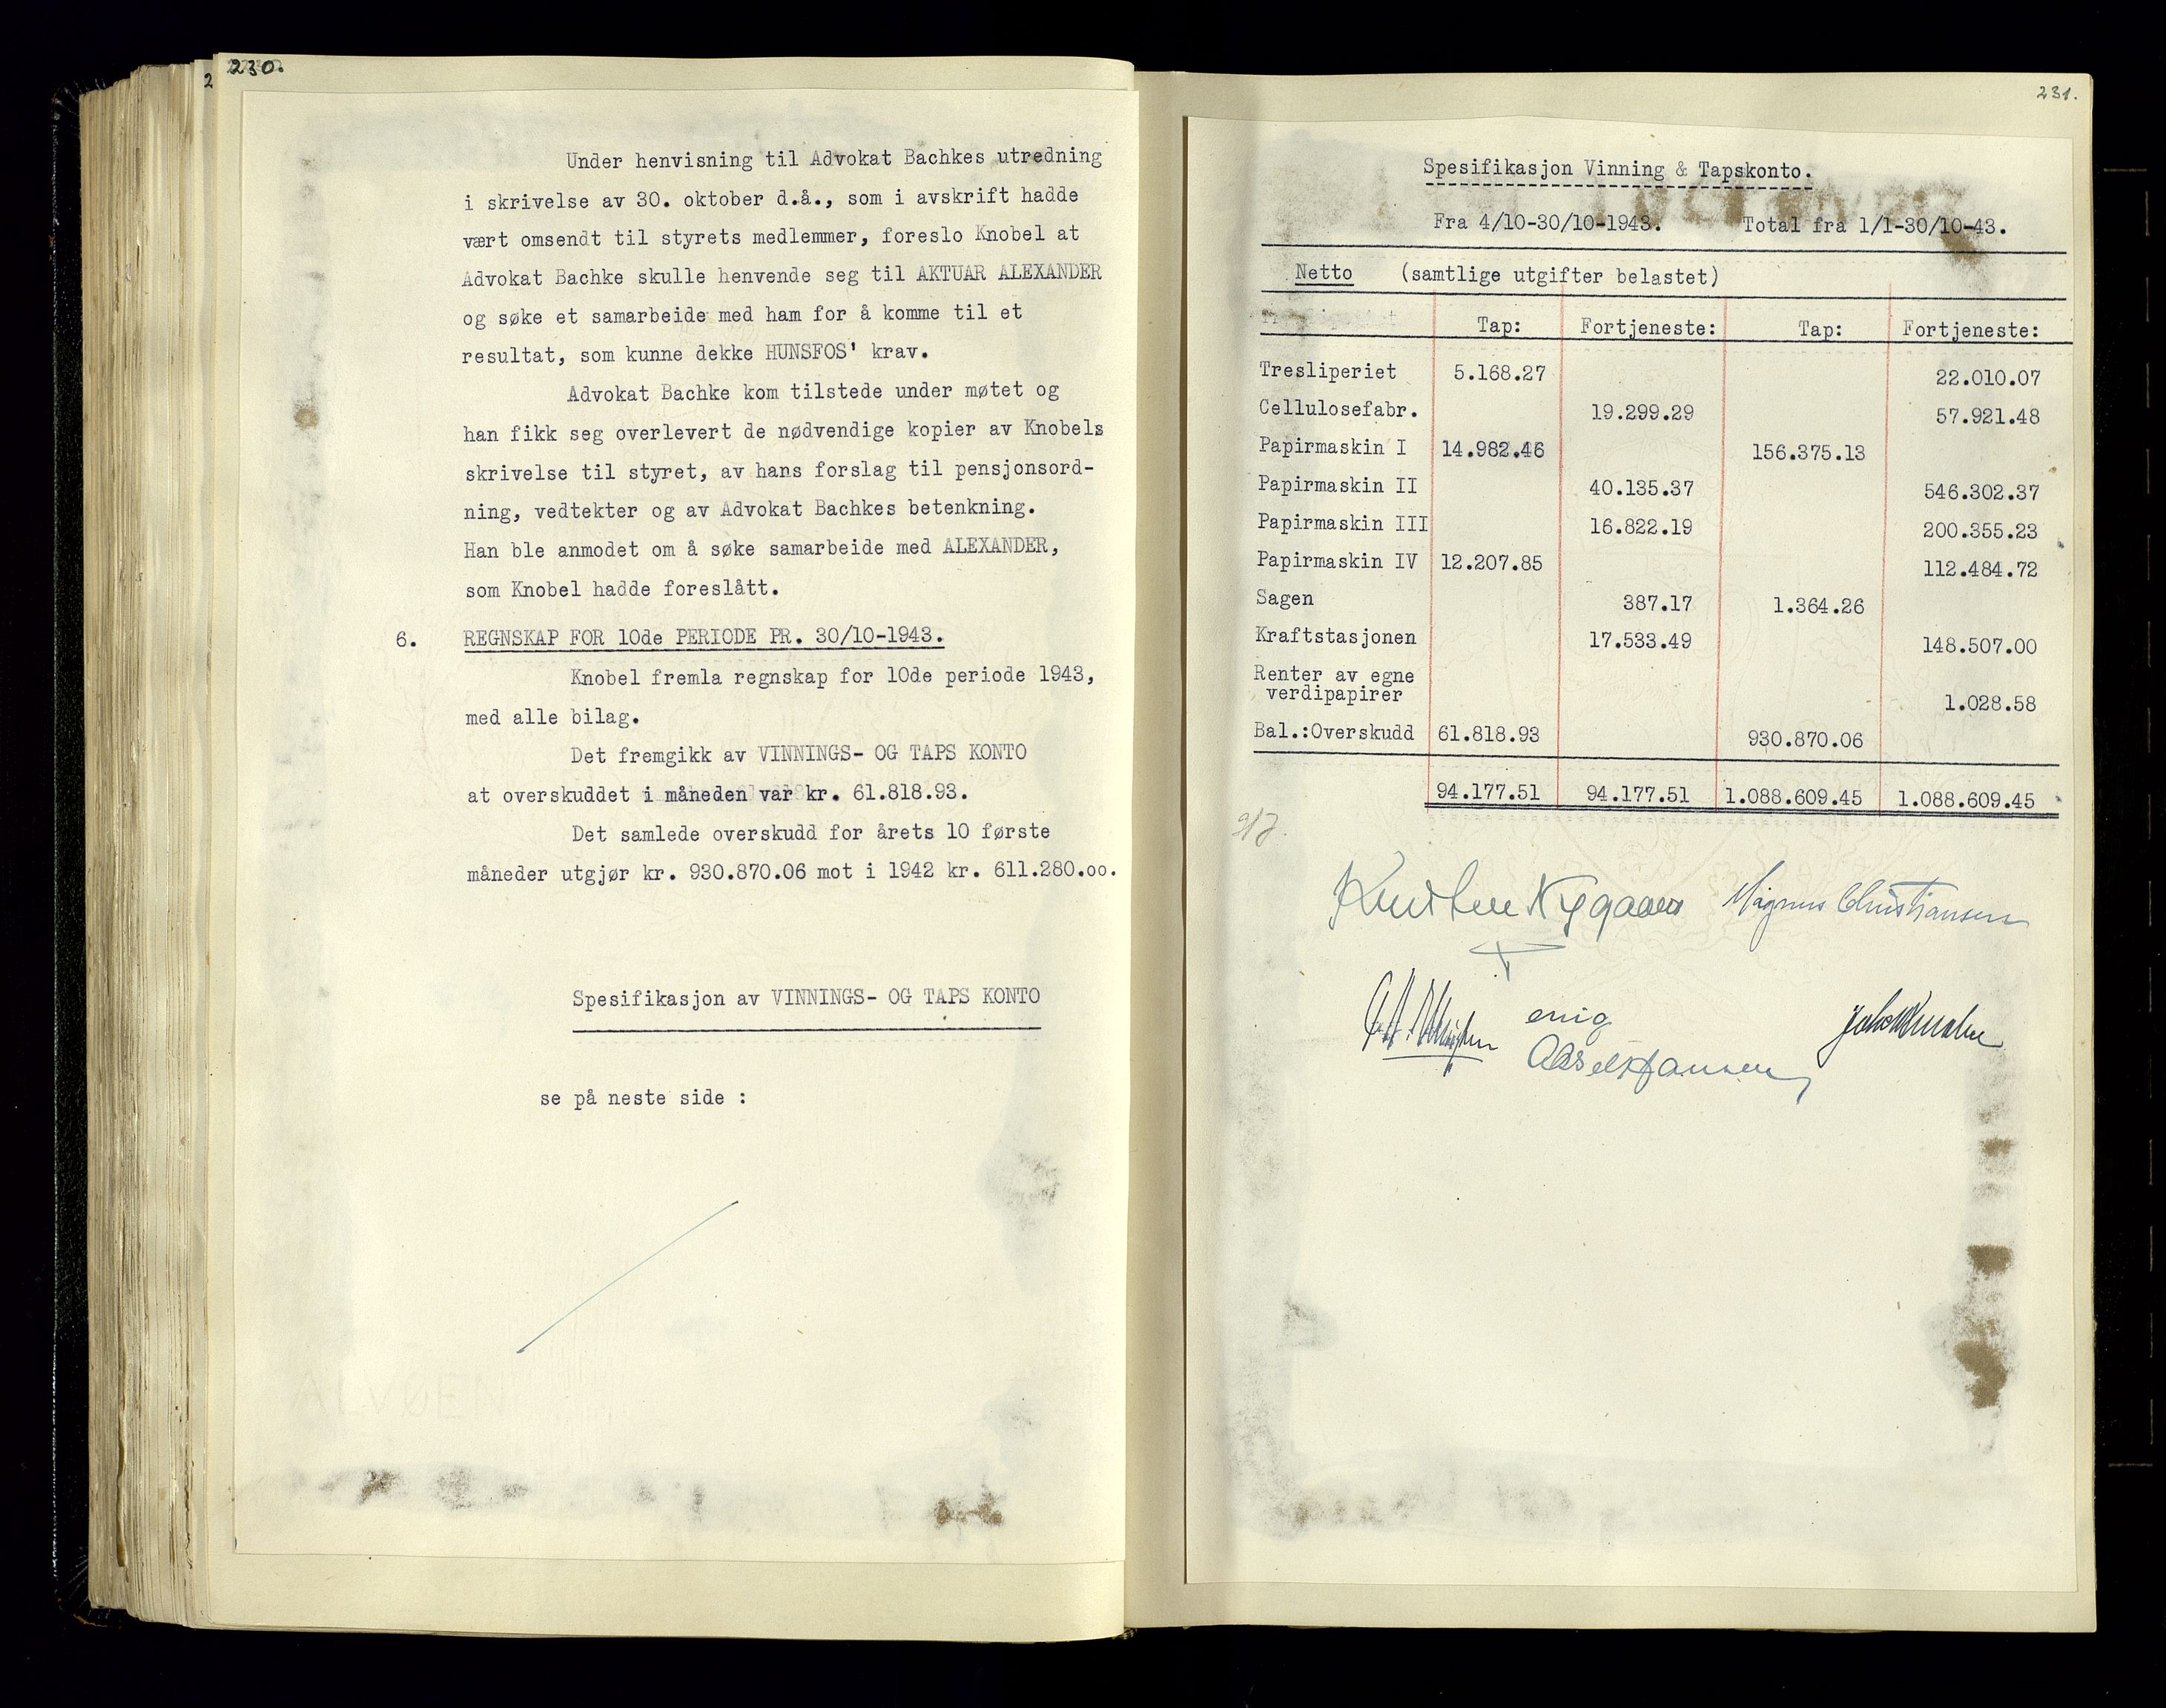 230.
Under henvisning til Advokat Bachkes utredning
i skrivelse av 30. oktober d.å., som i avskrift hadde
vært omsendt til styrets medlemmer, foreslo Knobel at
Advokat Bachke skulle henvende seg til AKTUAR ALEXANDER
og søke et samarbeide med ham for å komme til et
resultat, som kunne dekke HUNSFOS' krav.
Advokat Bachke kom tilstede under møtet og
han fikk seg overlevert de nødvendige kopier av Knobels
skrivelse til styret, av hans forslag til pensjonsord-
ning, vedtekter og av Advokat Bachkes betenkning.
Han ble anmodet om å søke samarbeide med ALEXANDER,
som Knobel hadde foreslått.
6. REGNSKAP FOR 10de PERIODE PR. 30/10-1943.
Knobel fremla regnskap for 10de periode 1943,
med alle bilag.
Det fremgikk av VINNINGS- OG TAPS KONTO
at overskuddet i måneden var kr. 61.818.93.
Det samlede overskudd for årets 10 første
måneder utgjør kr. 930.870.06 mot i 1942 kr. 611.280.oo.
Spesifikasjon av VINNINGS- OG TAPS KONTO
se på neste side :
ALVØEN
231.
Spesifikasjon Vinning & Tapskonto.
Fra 4/10-30/10-1943. Total fra 1/1-30/10-43.
Netto (samtlige utgifter belastet)
Tap: Fortjeneste: Tap: Fortjeneste:
Tresliperiet 5.168.27 22.010.07
Cellulosefabr. 19.299.29 57.921.48
Papirmaskin I 14.982.46 156.375.13
Papirmaskin II 40.135.37 546.302.37
Papirmaskin III 16.822.19 200.355.23
Papirmaskin IV 12.207.85 112.484.72
Sagen 387.17 1.364.26
Kraftstasjonen 17.533.49 148.507.00
Renter av egne
verdipapirer 1.028.58
Bal.:Overskudd 61.818.93 930.870.06
94.177.51 94.177.51 1.088.609.45 1.088.609.45
Nygaard Magnus Christiansen
enig
Aksel Hansen